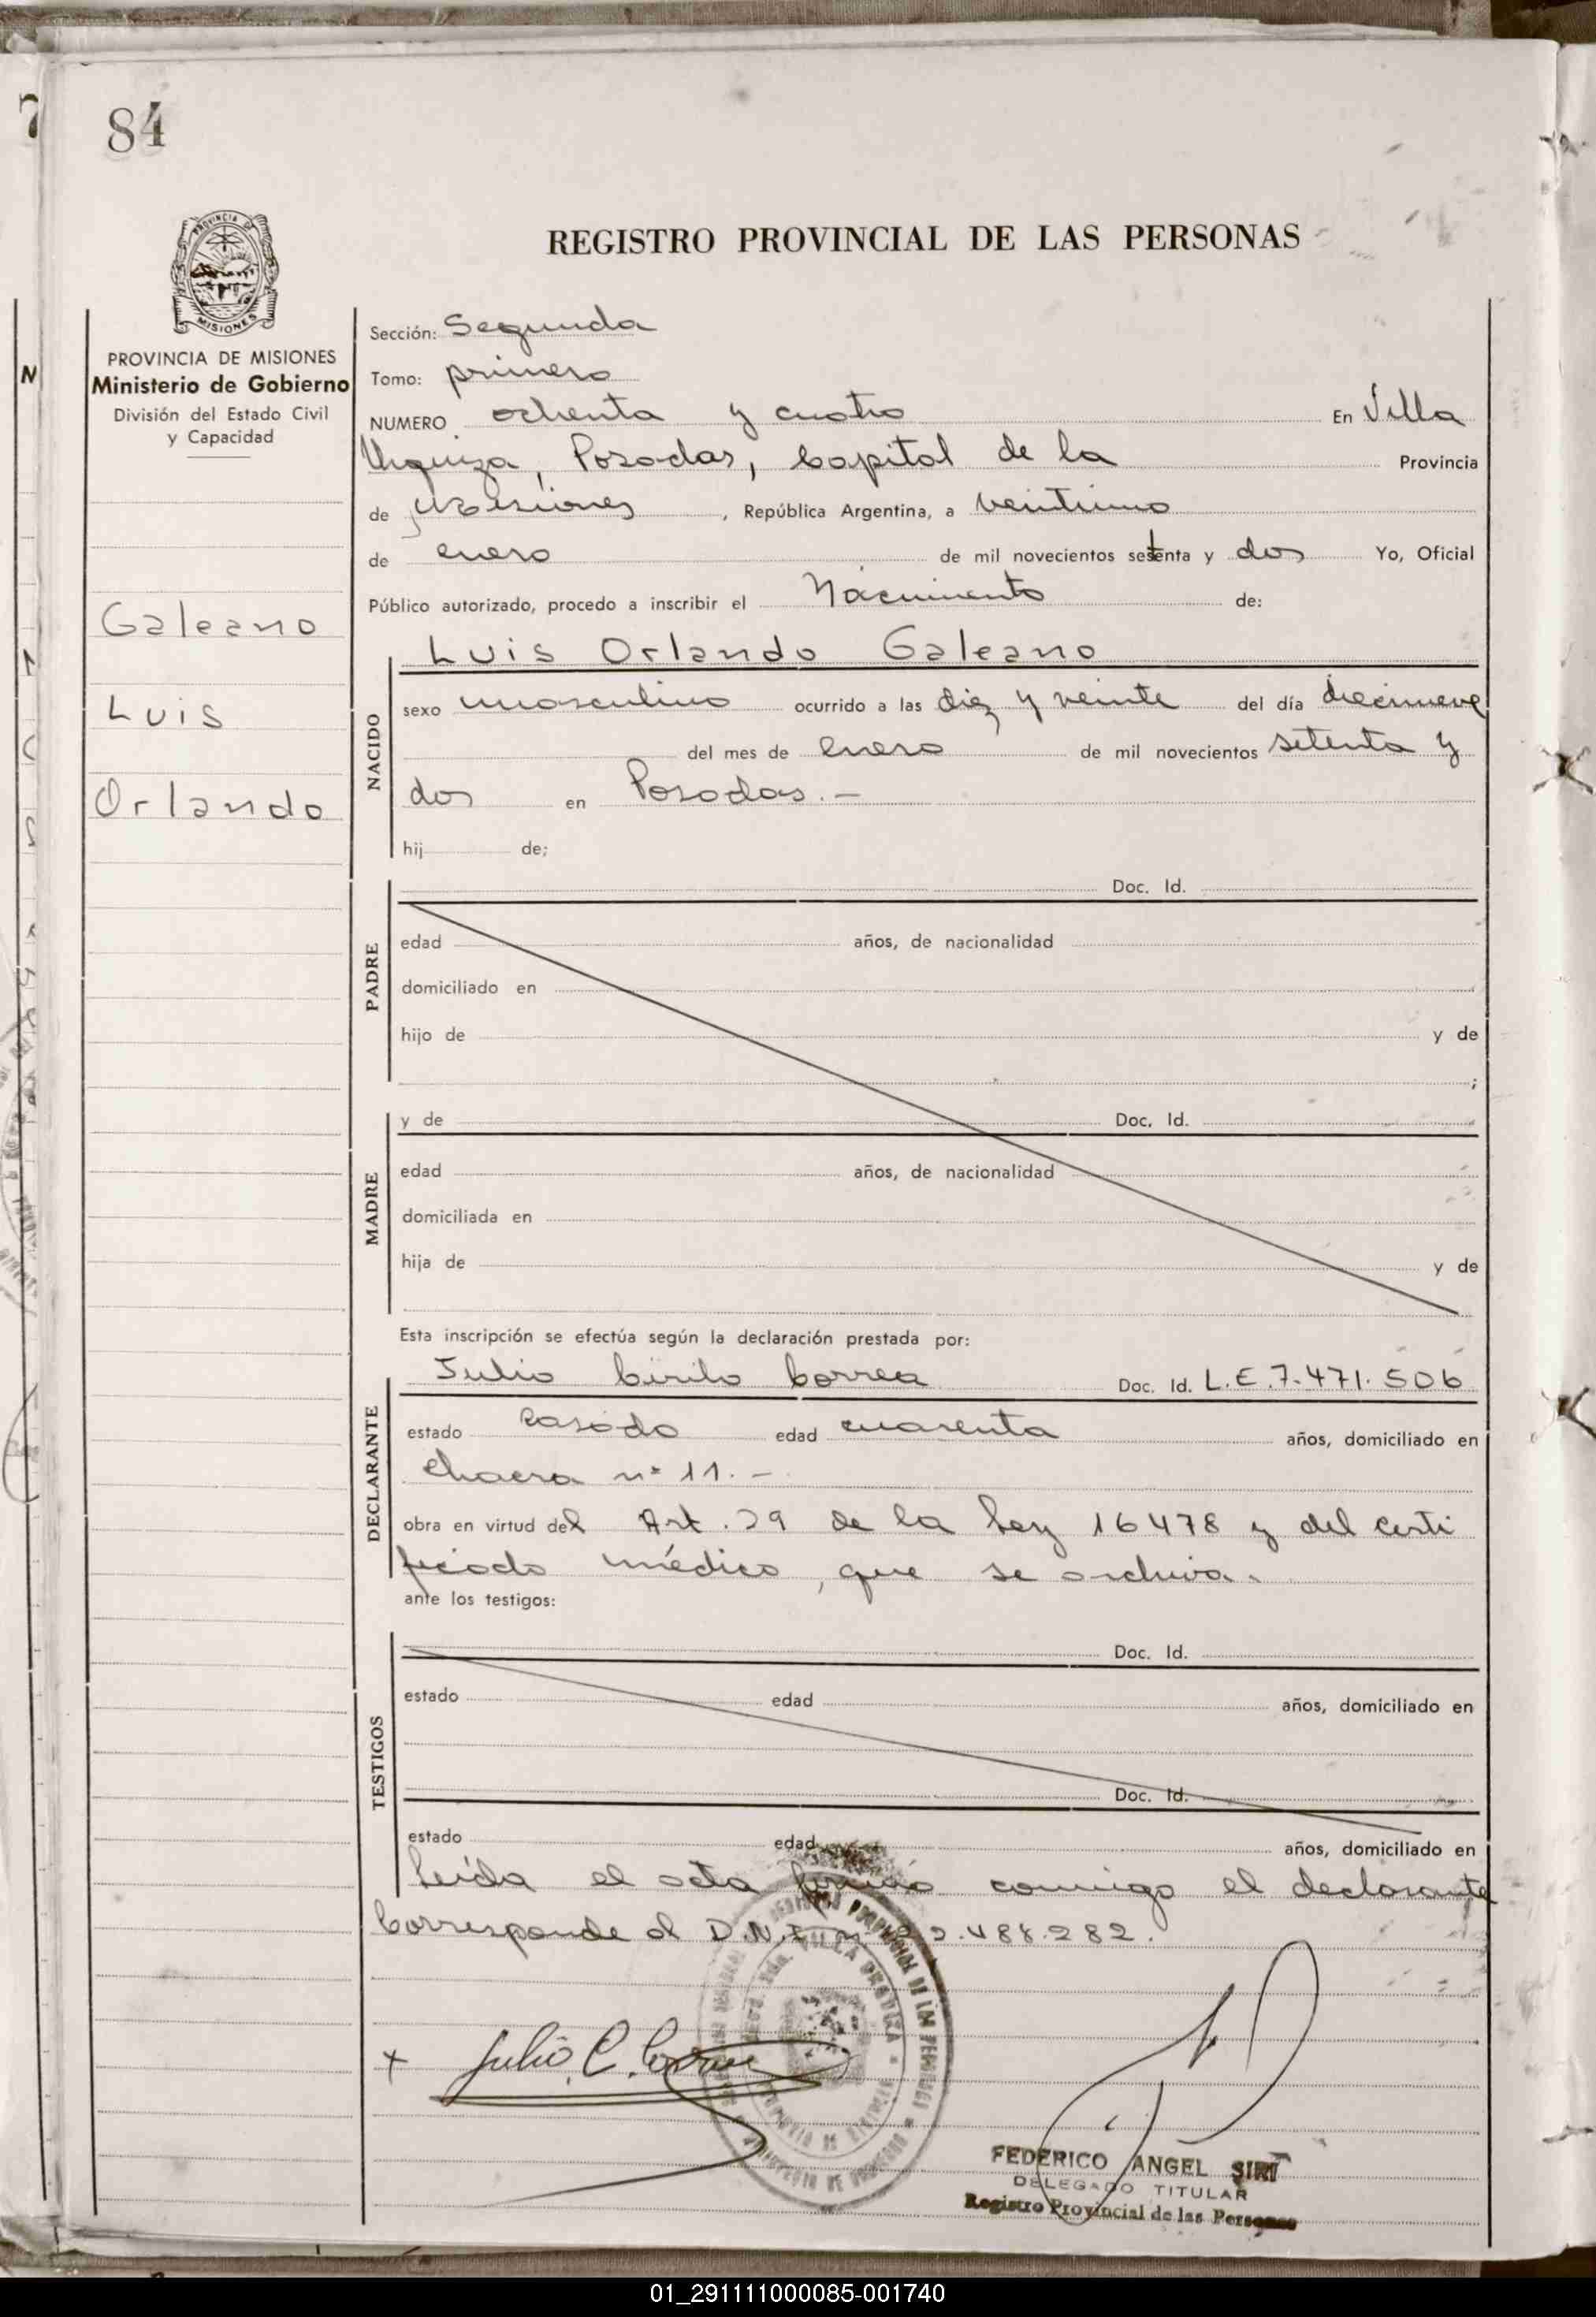 84
PROVINCIA DE
MISIONES
PROVINCIA DE MISIONES
Ministerio de Gobierno
División del Estado Civil
y Capacidad
Galeano
Luis
Orlando
REGISTRO PROVINCIAL DE LAS PERSONAS
Sección: Segunda
Tomo: primero
NUMERO ochenta y cuatro En Villa
Urquiza, Posadas, Capital de la Provincia
de Misiones, República Argentina, a veintiuno
de enero de mil novecientos setenta y dos Yo, Oficial
Público autorizado, procedo a inscribir el Nacimiento de:
Luis Orlando Galeano
NACIDO
sexo masculino ocurrido a las diez y veinte del día diecinueve
del mes de enero de mil novecientos setenta y
dos en Posadas.-
hij de;
PADRE
Doc. Id.
edad años, de nacionalidad
domiciliado en
hijo de y de
;
MADRE
y de Doc. Id.
edad años, de nacionalidad
domiciliada en
hija de y de
Esta inscripción se efectúa según la declaración prestada por:
DECLARANTE
Julio Cirilo Correa Doc. Id. L.E.7.471.506
estado casado edad cuarenta años, domiciliado en
chacra nº 11.-
obra en virtud del Art. 29 de la Ley 16478 y del certi
ficado médico, que se archiva.
ante los testigos:
TESTIGOS
Doc. Id.
estado edad años, domiciliado en
Doc. Id.
estado edad años, domiciliado en
Leída el acta firmó conmigo el declarante
Corresponde al D.N.I. 2.488.282.
VILLA URQUIZA
+ Julio C. Correa
FEDERICO ANGEL SIRI
DELEGADO TITULAR
Registro Provincial de las Personas
01_291111000085-001740